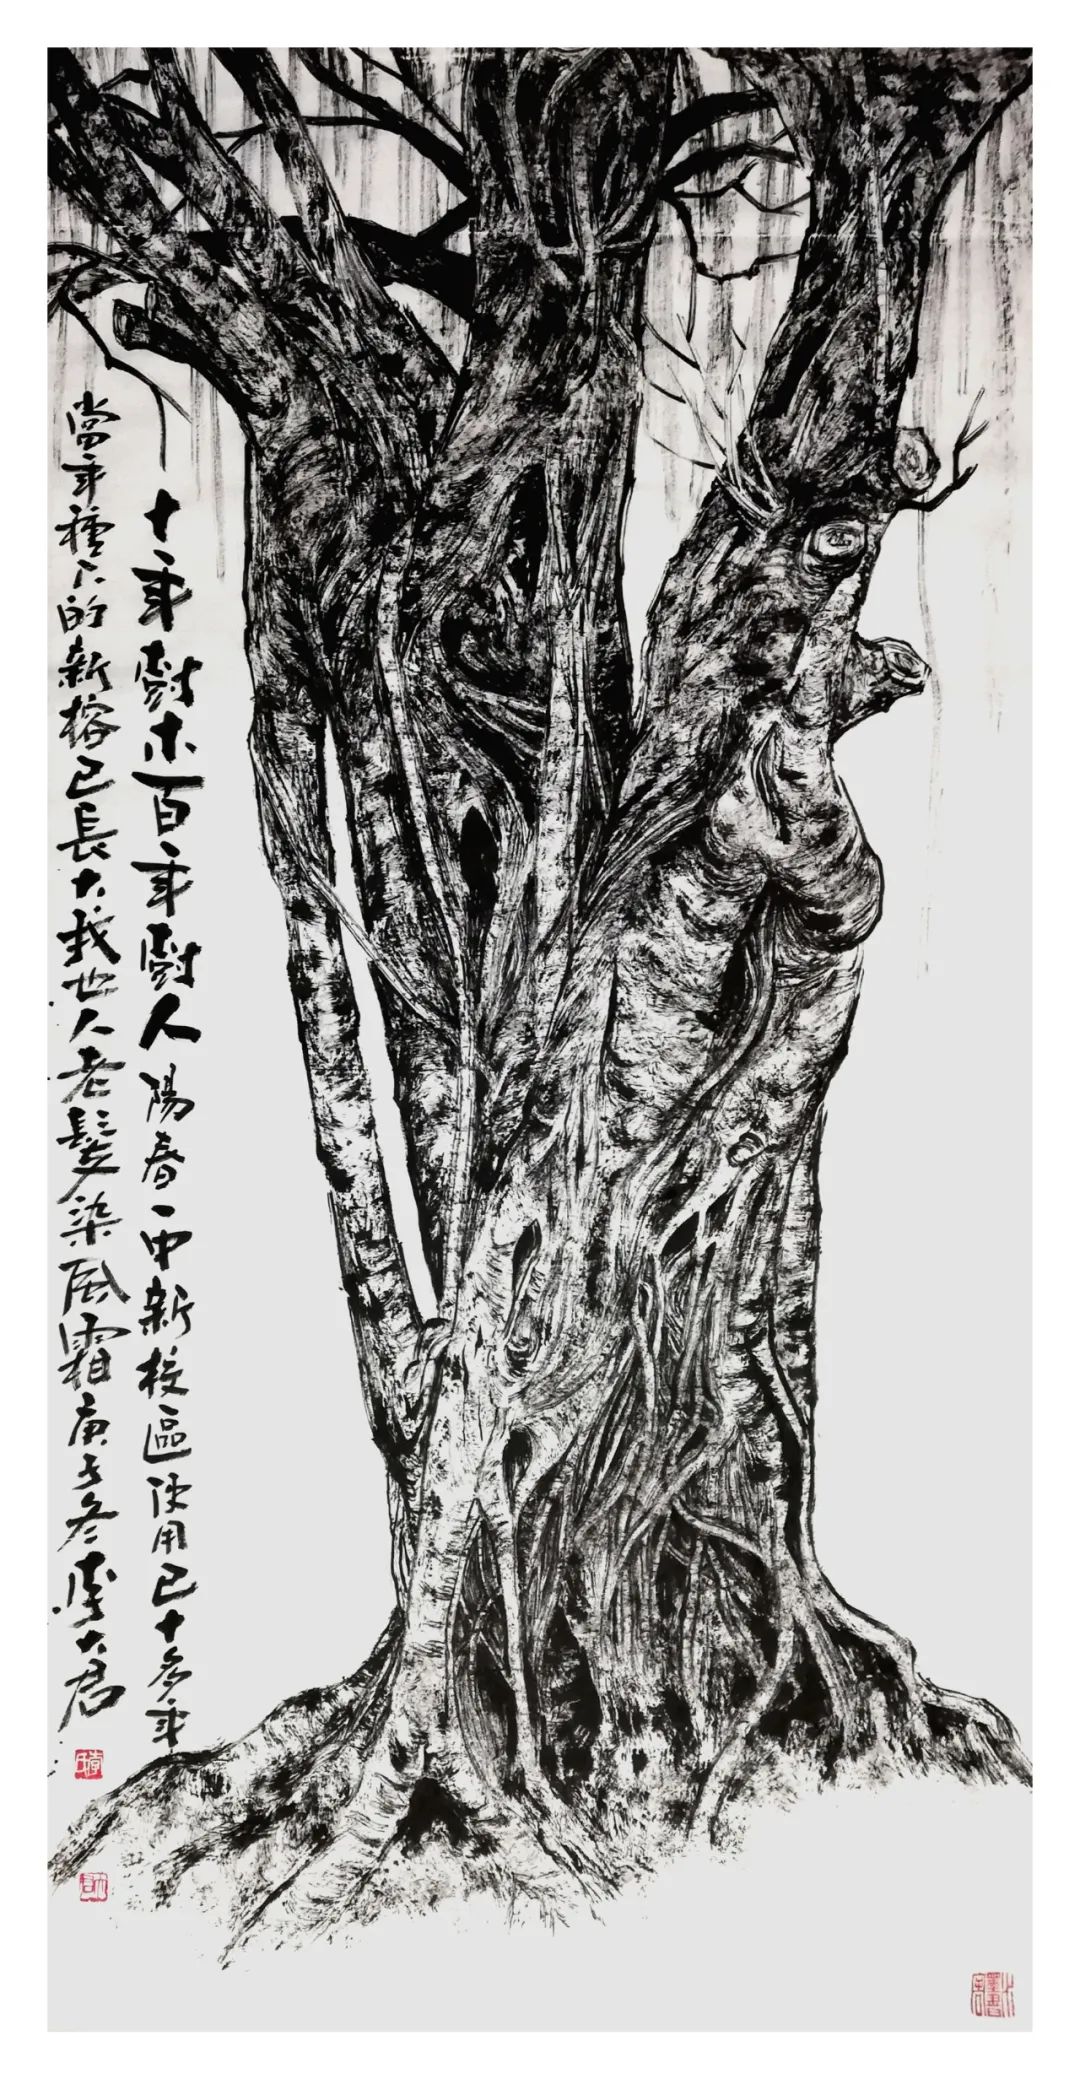 十年樹木百年樹人陽春一中新校區使用已十多年
當年種下的新榕已長大我也人老髮染風霜庚子冬李大君